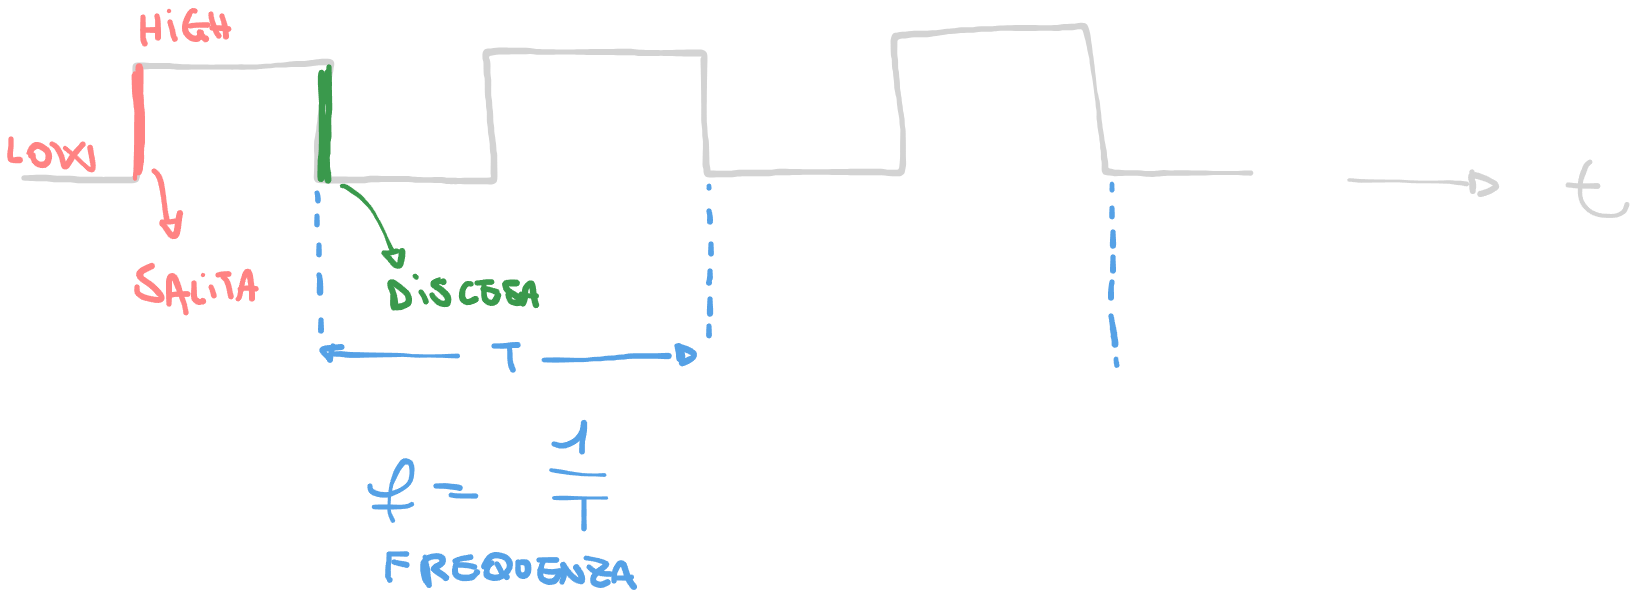 HiGH
LOW
t
SALiTA
DiSCESA
T
f = 1/T
FREQUENZA